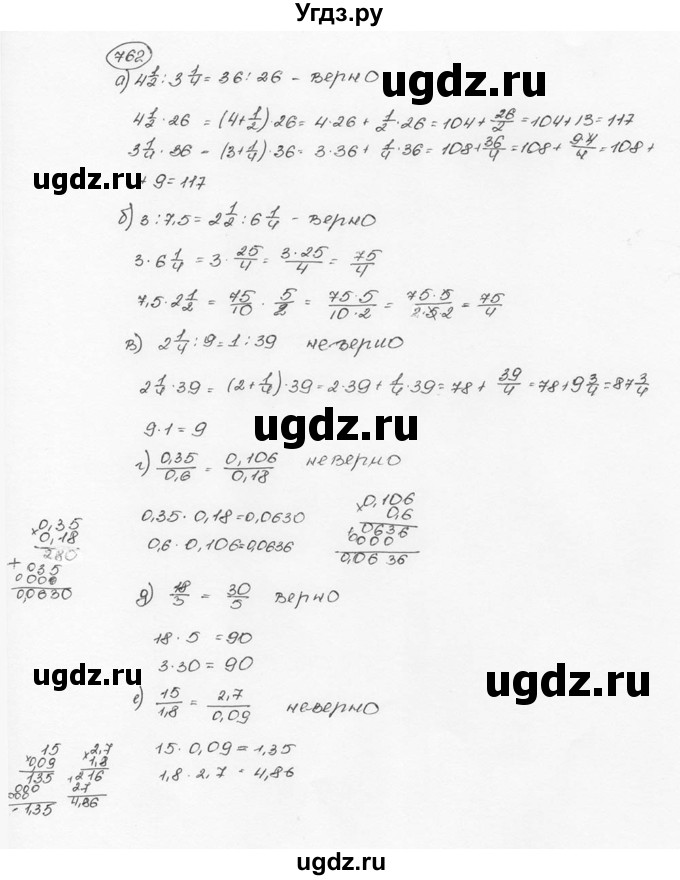 Угдз.ру
762
а) 4 1/2 : 3 1/4 = 36 : 26 - верно
ugdz.ru
4 1/2 · 26 = (4 + 1/2) · 26 = 4 · 26 + 1/2 · 26 = 104 + 26/2 = 104 + 13 = 117
3 1/4 · 36 - (3 + 1/4) · 36 = 3 · 36 + 1/4 · 36 = 108 + 36/4 = 108 + 9·4/4 = 108 +
+ 9 = 117
ugdz.ru
ugdz.ru
б) 3 : 7,5 = 2 1/2 : 6 1/4 - верно
3 · 6 1/4 = 3 · 25/4 = 3·25/4 = 75/4
7,5 · 2 1/2 = 75/10 · 5/2 = 75·5/10·2 = 75·5/2·5·2 = 75/4
в) 2 1/4 : 9 = 1 : 39 неверно
2 1/4 · 39 = (2 + 1/4) · 39 = 2 · 39 + 1/4 · 39 = 78 + 39/4 = 78 + 9 3/4 = 87 3/4
9 · 1 = 9
ugdz.ru
г) 0,35/0,6 = 0,106/0,18 неверно
0,35 · 0,18 = 0,0630
0,6 · 0,106 = 0,0636
×0,106
0,6
+0636
0000
0,0636
×0,35
0,18
280
+035
0000
0,0630
ugdz.ru
д) 18/3 = 30/5 верно
18 · 5 = 90
3 · 30 = 90
ugdz.ru
е) 15/1,8 = 2,7/0,09 неверно
15 · 0,09 = 1,35
1,8 · 2,7 = 4,86
15
×0,09
135
1,35
×2,7
1,8
+216
27
4,86
ugdz.ru
ugdz.ru